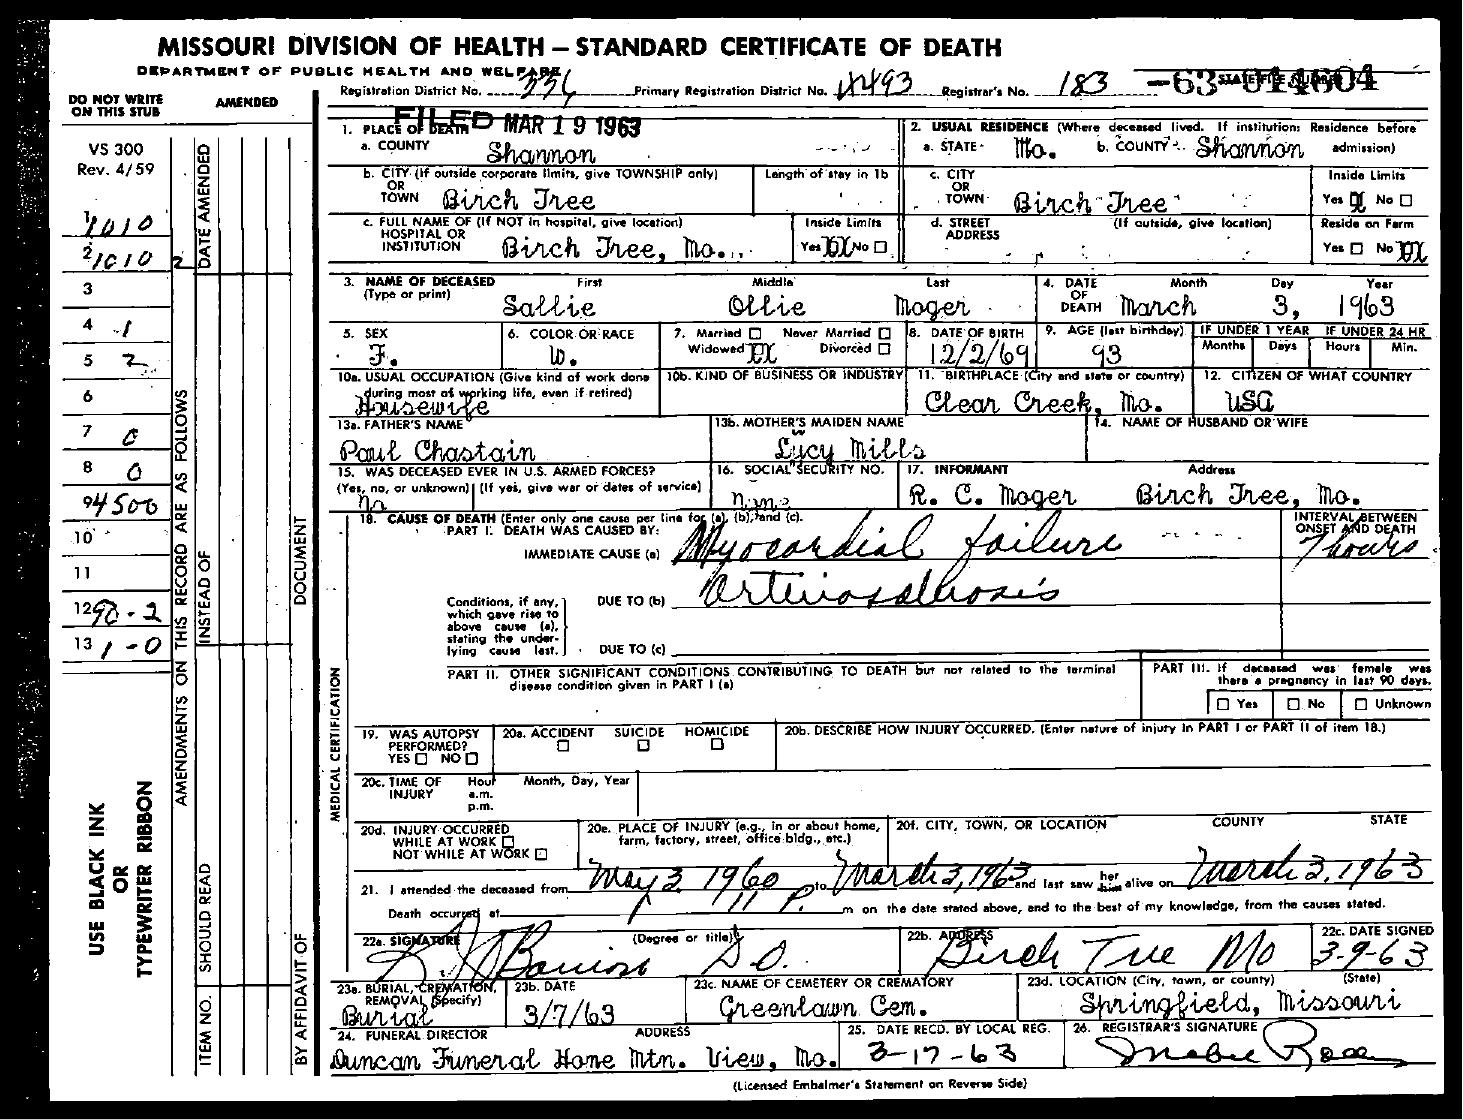 MISSOURI DIVISION OF HEALTH — STANDARD CERTIFICATE OF DEATH
DEPARTMENT OF PUBLIC HEALTH AND WELFARE
Registration District No. 336 Primary Registration District No. 4493 Registrar's No. 183 -63-014604
STATE FILE NUMBER
DO NOT WRITE ON THIS STUB
AMENDED
VS 300
Rev. 4/59
1 1010
2 1010 2
3
4 1
5 2
6
7 0
8 0
9 4500
10
11
12 90-2
13 1-0
USE BLACK INK
OR
TYPEWRITER RIBBON
AMENDMENTS ON THIS RECORD ARE AS FOLLOWS
DATE AMENDED
INSTEAD OF
SHOULD READ
ITEM NO.
DOCUMENT
BY AFFIDAVIT OF
MEDICAL CERTIFICATION
FILED MAR 19 1963
1. PLACE OF DEATH
a. COUNTY Shannon
2. USUAL RESIDENCE (Where deceased lived. If institution: Residence before admission)
a. STATE Mo. b. COUNTY Shannon
b. CITY (If outside corporate limits, give TOWNSHIP only)
OR
TOWN Birch Tree
Length of stay in 1b
c. CITY
OR
TOWN Birch Tree
Inside Limits
Yes X No
c. FULL NAME OF (If NOT in hospital, give location)
HOSPITAL OR
INSTITUTION Birch Tree, Mo.
Inside Limits
Yes XX No
d. STREET
ADDRESS
(If outside, give location)
Reside on Farm
Yes No XX
3. NAME OF DECEASED
(Type or print)
First Middle Last
Sallie Ollie Moger
4. DATE
OF
DEATH
Month Day Year
March 3, 1963
5. SEX
F.
6. COLOR OR RACE
W.
7. Married Never Married
Widowed XX Divorced
8. DATE OF BIRTH
12/2/69
9. AGE (last birthday)
93
IF UNDER 1 YEAR
Months Days
IF UNDER 24 HR
Hours Min.
10a. USUAL OCCUPATION (Give kind of work done
during most of working life, even if retired)
Housewife
10b. KIND OF BUSINESS OR INDUSTRY
11. BIRTHPLACE (City and state or country)
Clear Creek, Mo.
12. CITIZEN OF WHAT COUNTRY
USA
13a. FATHER'S NAME
Paul Chastain
13b. MOTHER'S MAIDEN NAME
Lucy Mills
14. NAME OF HUSBAND OR WIFE
15. WAS DECEASED EVER IN U.S. ARMED FORCES?
(Yes, no, or unknown) (If yes, give war or dates of service)
No
16. SOCIAL SECURITY NO.
17. INFORMANT Address
R. C. Moger Birch Tree, Mo.
18. CAUSE OF DEATH (Enter only one cause per line for (a), (b), and (c).
PART I. DEATH WAS CAUSED BY:
INTERVAL BETWEEN
ONSET AND DEATH
IMMEDIATE CAUSE (a) Myocardial failure 7 hours
Conditions, if any,
which gave rise to
above cause (a),
stating the under-
lying cause last.
DUE TO (b) Arteriosclerosis
DUE TO (c)
PART II. OTHER SIGNIFICANT CONDITIONS CONTRIBUTING TO DEATH but not related to the terminal
disease condition given in PART I (a)
PART III. If deceased was female was
there a pregnancy in last 90 days.
Yes No Unknown
19. WAS AUTOPSY
PERFORMED?
YES NO
20a. ACCIDENT SUICIDE HOMICIDE
20b. DESCRIBE HOW INJURY OCCURRED. (Enter nature of injury in PART I or PART II of item 18.)
20c. TIME OF
INJURY
Hour
a.m.
p.m.
Month, Day, Year
20d. INJURY OCCURRED
WHILE AT WORK
NOT WHILE AT WORK
20e. PLACE OF INJURY (e.g., in or about home,
farm, factory, street, office bldg., etc.)
20f. CITY, TOWN, OR LOCATION COUNTY STATE
21. I attended the deceased from May 3 1960 to March 3, 1963 and last saw her him alive on March 3, 1963
Death occurred at 11 P. m on the date stated above, and to the best of my knowledge, from the causes stated.
22a. SIGNATURE (Degree or title)
D.O.
22b. ADDRESS
Birch Tree Mo
22c. DATE SIGNED
3-9-63
23a. BURIAL, CREMATION,
REMOVAL (Specify)
Burial
23b. DATE
3/7/63
23c. NAME OF CEMETERY OR CREMATORY
Greenlawn Cem.
23d. LOCATION (City, town, or county) (State)
Springfield, Missouri
24. FUNERAL DIRECTOR ADDRESS
Duncan Funeral Home Mtn. View, Mo.
25. DATE RECD. BY LOCAL REG.
3-17-63
26. REGISTRAR'S SIGNATURE
(Licensed Embalmer's Statement on Reverse Side)